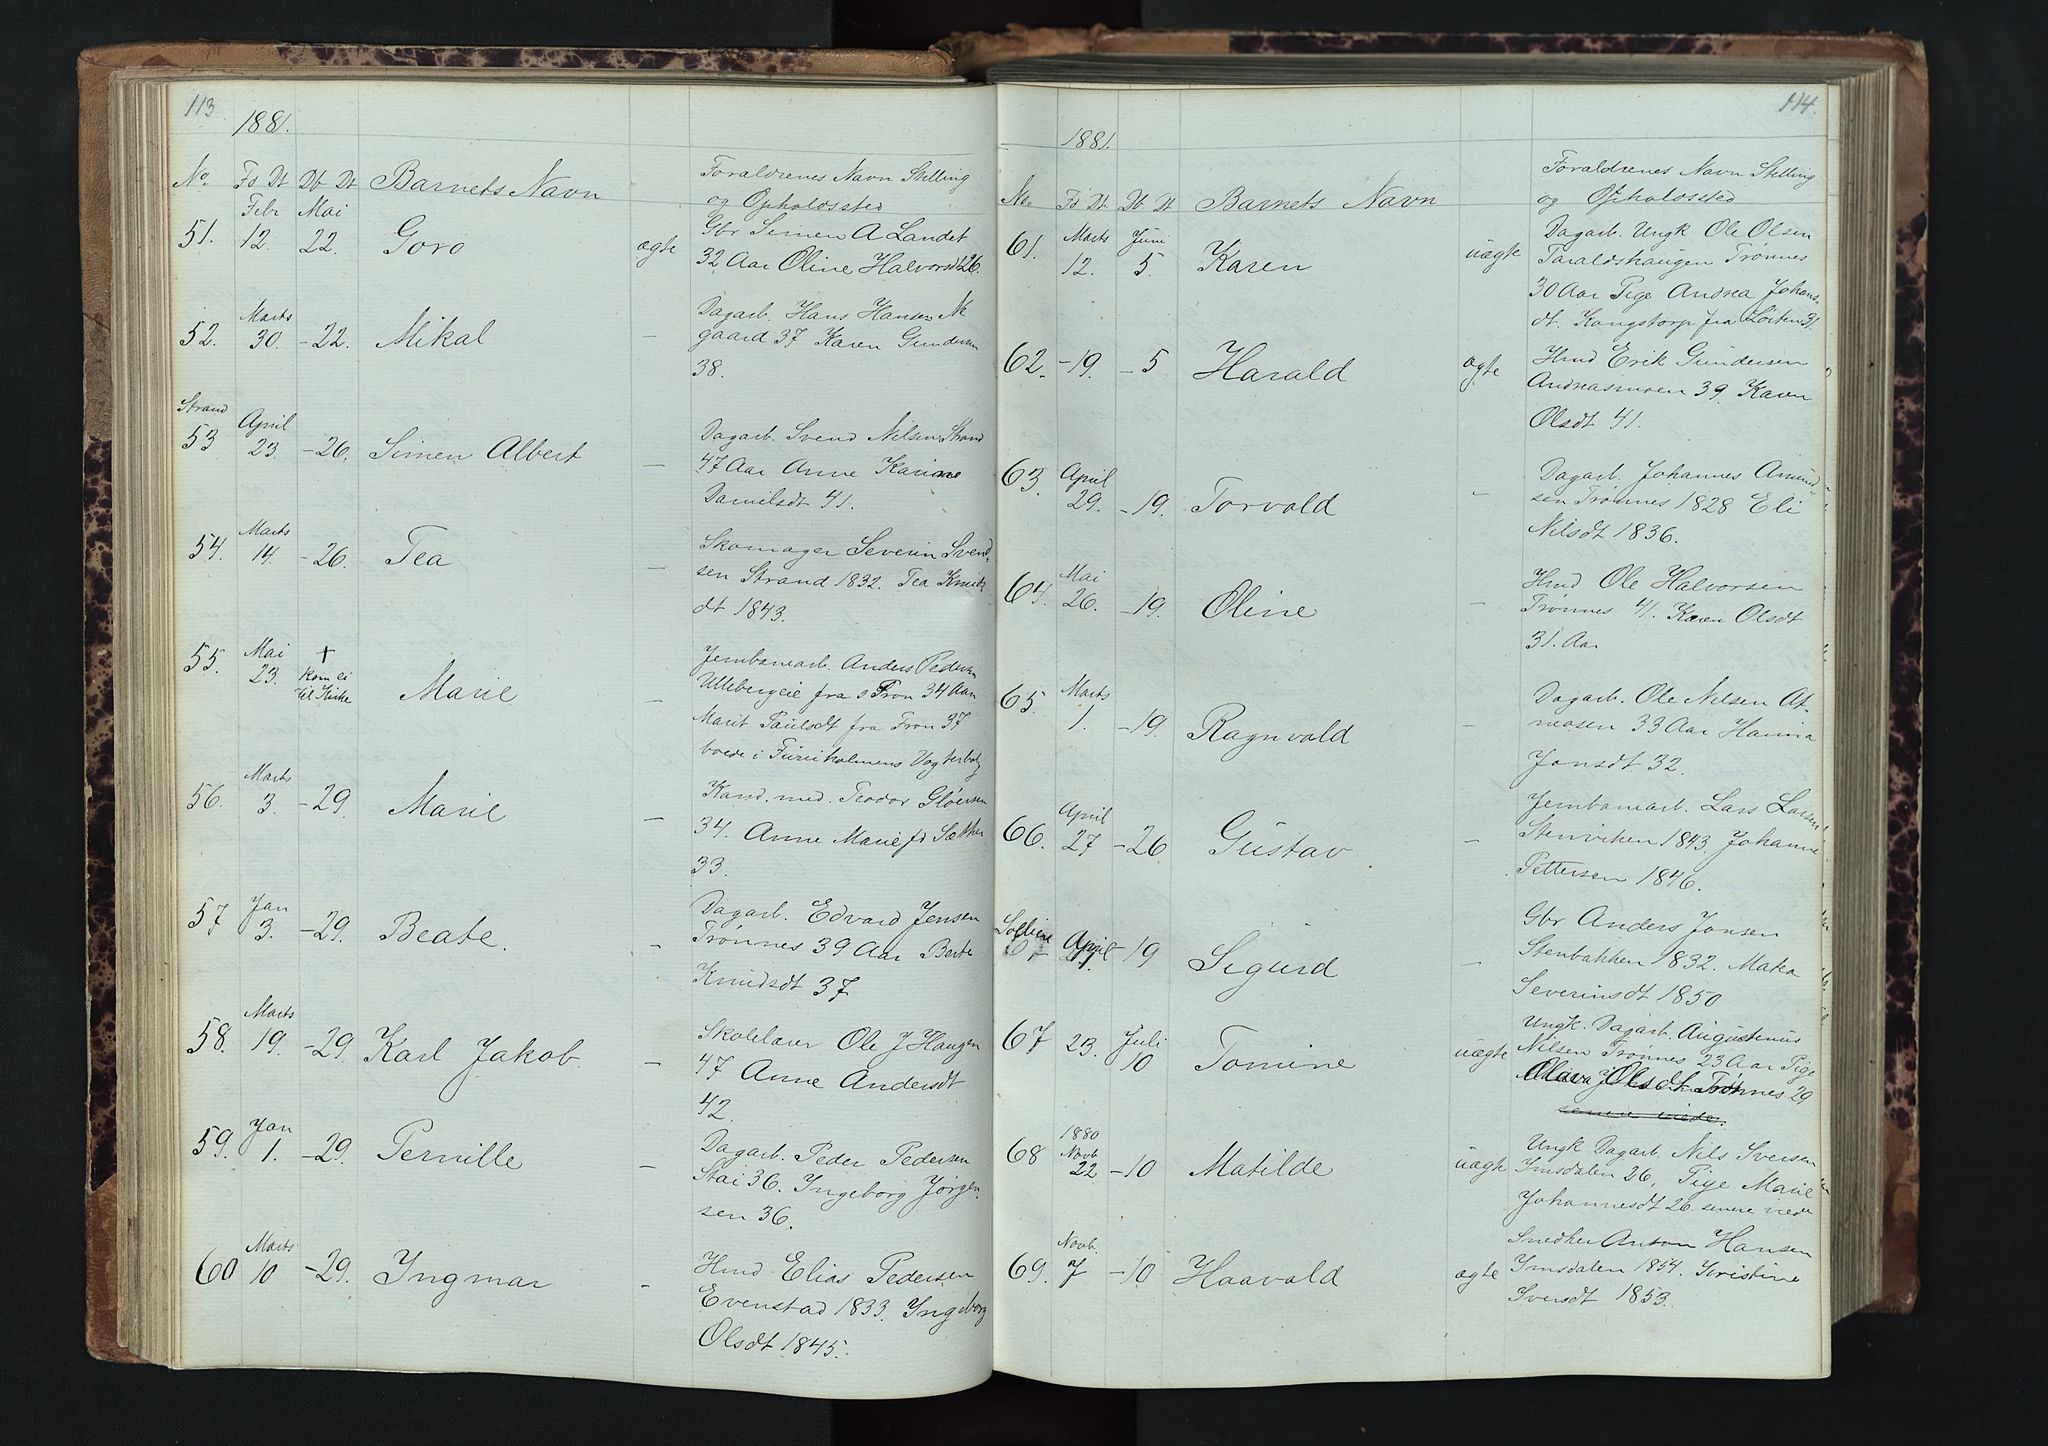 113
1881.
No. Fd Dt Db Dt Barnets Navn Foraldrenes Navn Stilling
og Opholdssted
Febr Mai
51. 12. 22. Goro ægte Gbr Simen A Landet
32 Aar Oline Halvorsdt 26.
Marts
52. 30. -22. Mikal - Dagarb. Hans Hansen
gaard 37 Karen Gundersen
38.
Strand
April
53 23 -26. Simen Albert - Dagarb. Svend Nilsen Strand
47 Aar Anne Karine
Danielsdt 41.
Marts
54. 14. -26. Tea - Skomager Severin Svend
sen Strand 1832. Tea Knuts
dt 1843.
Mai +
55. 23. kom ei
til Kirke
Marie - Jernbanearb. Anders Pedersen
Ullebergeie fra s Fron 34 Aar
Marit Paulsdt fra Fron 37
boede i Furuholmens Vogterbolig
Marts
56. 3. -29. Marie - Kand. med. Teodor Gløersen
34. Anne Marie fd Sæther
33.
Jan
57 3. -29. Beate. - Dagarb. Edvard Jensen
Trønnes 39 Aar Berte
Knudsdt 37
Marts
58. 19. -29. Karl Jakob. - Skolelærer Ole J Haugen
47 Anne Andersdt
42.
Jan
59. 1. -29. Pernille - Dagarb. Peder Pedersen
Stai 36. Ingeborg Jørgen
sen 36.
Marts
60 10 -29. Ingmar - Hmd Elias Pedersen
Evenstad 1833. Ingeborg
Olsdt 1845.
114.
1881.
No. Fd Dt. Db Dt Barnets Navn Foraldrenes Navn Stilling
og Opholdssted
Marts Juni
61. 12. 5. Karen uægte Dagarb. Ungk Ole Olsen
Taraldshaugen Trønnes
30 Aar Pige Andrea Johans-
dt. Kongstorp fra Løiten 31
62. -19. -5 Harald ægte Hmd Erik Gundersen
Andreasmoen 39. Karen
Olsdt 41.
April
63. 29. -19. Torvald - Dagarb. Johannes Amund
sen Trønnes 1828 Eli
Nilsdt 1836.
Mai
64. 26. -19. Oline - Hmd Ole Halvorsen
Trønnes 41. Karen Olsdt
31. Aar
Marts
65. 1. -19. Ragnvald - Dagarb. Ole Nilsen At-
neosen 33 Aar Hanna
Jonsdt 32.
April
66. 27 -26 Gustav - Jernbanearb. Lars Larsen
Stenviken 1843. Johanne
Pettersen 1846.
67 April -19 Sigurd - Gbr Anders Jonsen
Stenbakken 1832. Maka
Severinsdt 1850
67 23. Juli
10 Tomine uægte Ungk. Dagarb. Augustinus
Nilsen Trønnes 23 Aar Pige
Olava Olsdt Trønnes 29
senere viede.
1880
Novb.
68 22 -10 Matilde uægte Ungk Dagarb. Nils Iversen
Imsdalen 26, Pige Marie
Johannesdt 26. senere viede
Novb.
69. 7 -10 Haavald ægte Snedker Anton Hansen
Imsdalen 1854. Kristine
Iversdt 1853.